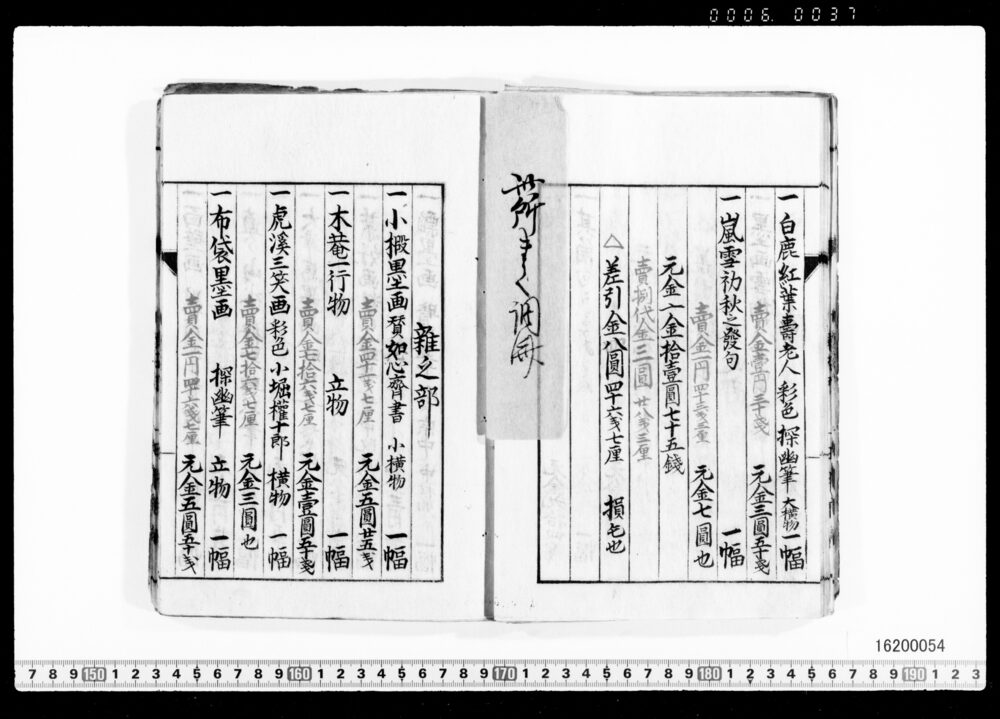 0006. 0037
一白鹿紅葉壽老人 彩色 探幽筆 大横物 一幅
賣金壹円三十戔 元金三圓五十戔
一嵐雪初秋之發句 一幅
賣金一円四十三戔三厘 元金七圓也
元金〆金拾壹圓七十五錢
賣捌代金三圓廿八戔三厘
△差引金八圓四十六戔七厘 損毛也
雜之部
一小掇墨画 賛如心齊書 小横物 一幅
賣金四十一戔七厘 元金五圓廿五戔
一木菴一行物 立物 一幅
賣金七拾六戔七厘 元金壹圓五十戔
一虎溪三笑画 彩色 小堀權十郎 横物 一幅
賣金七拾六戔七厘 元金三圓也
一布袋墨画 探幽筆 立物 一幅
賣金一円四十六戔七厘 元金五圓五十戔
16200054
7 8 9 150 1 2 3 4 5 6 7 8 9 160 1 2 3 4 5 6 7 8 9 170 1 2 3 4 5 6 7 8 9 180 1 2 3 4 5 6 7 8 9 190 1 2 3